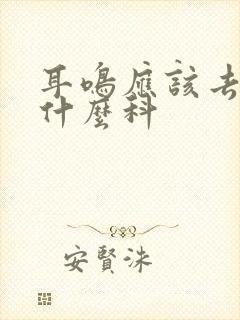 耳鳴應該去
什麼科
安賢洙